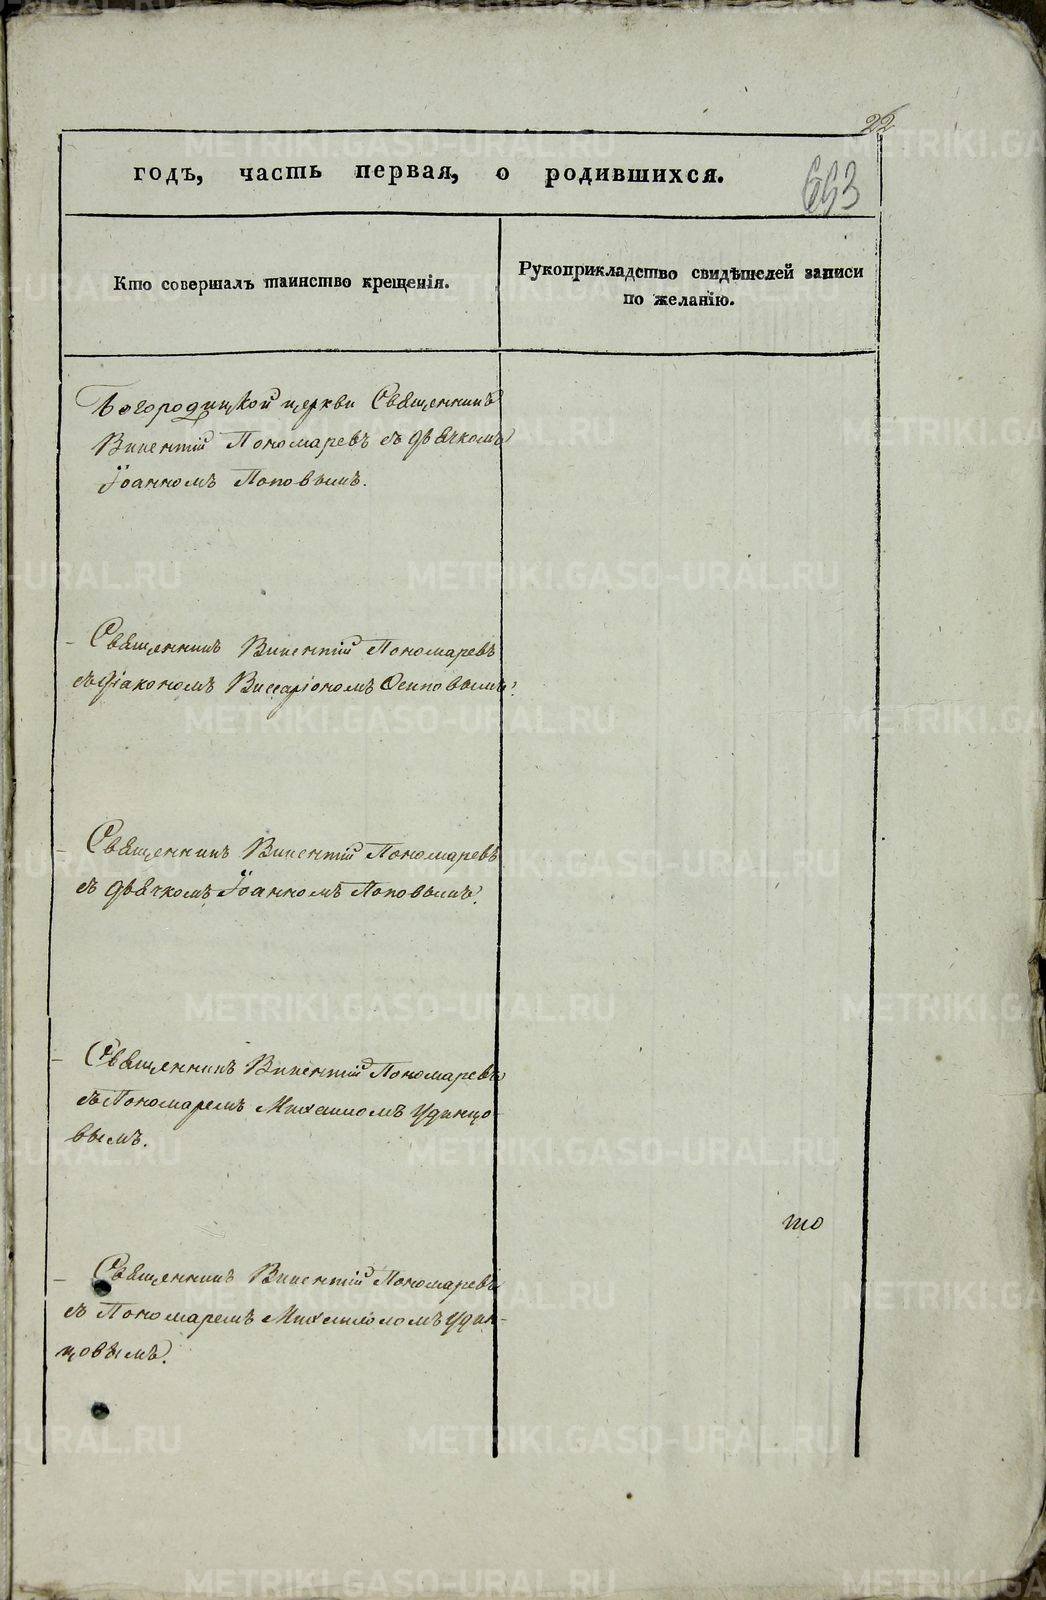 22
годъ, часть первая, о родившихся.
653
Кто совершалъ таинство крещенія.
Рукоприкладство свидѣтелей записи
по желанію.
Богородицкой церкви Священникъ
Викентій Пономаревъ съ дьячкомъ
Іоанномъ Поповымъ.
Священникъ Викентій Пономаревъ
съ діакономъ Виссаріономъ Осиповымъ.
Священникъ Викентій Пономаревъ
съ дьячкомъ Іоанномъ Поповымъ.
Священникъ Викентій Пономаревъ
съ Пономаремъ Михаиломъ Удинцо-
вымъ.
то
Священникъ Викентій Пономаревъ
съ Пономаремъ Михаиломъ Удин-
цовымъ.
METRIKI.GASO-URAL.RU